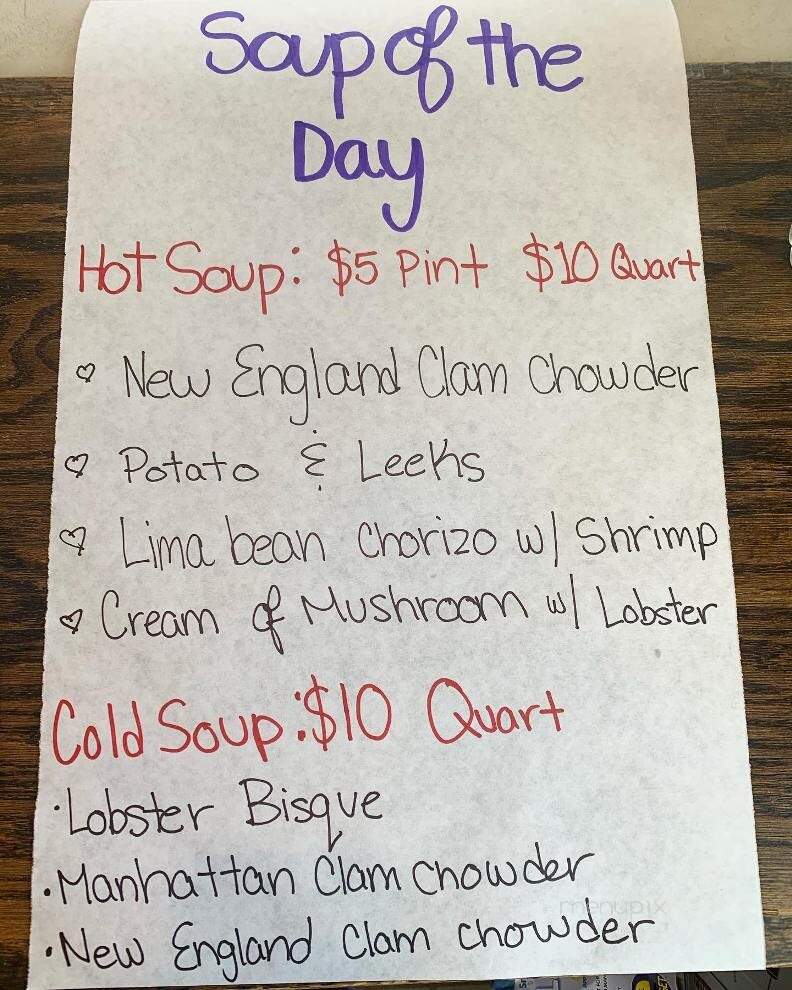 Soup of the
Day
Hot Soup: $5 Pint $10 Quart
♡ New England Clam Chowder
♡ Potato & Leeks
♡ Lima bean Chorizo w/ Shrimp
♡ Cream of Mushroom w/ Lobster
Cold Soup: $10 Quart
·Lobster Bisque
·Manhattan Clam Chowder
menupix
·New England Clam chowder